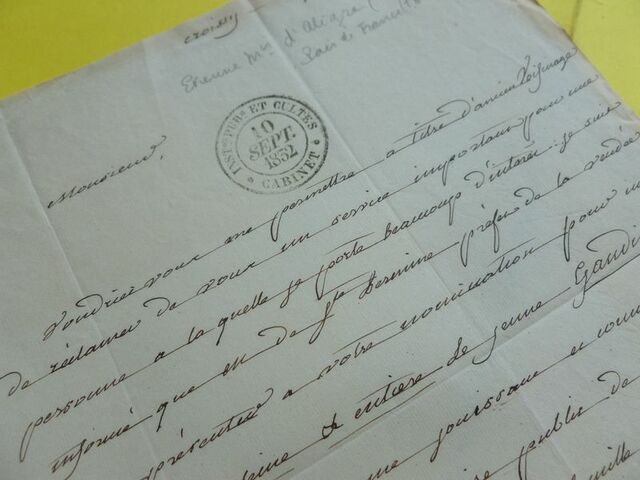 croissy
Etienne Mis d'Aligre
Pair de France
INSTon PUBe ET CULTES
10
SEPT.
1852
* CABINET *
Monsieur,
Voudriez vous me permettre a titre d'ancien Voisinage
de réclamer de vous un service important pour une
personne a la quelle je porte beaucoup d'interêt. je suis
informé que mr de Ste hermine préfet de la vendée
présenter a votre nomination pour
entière le jeune Gaudi
me jouissant en
public de